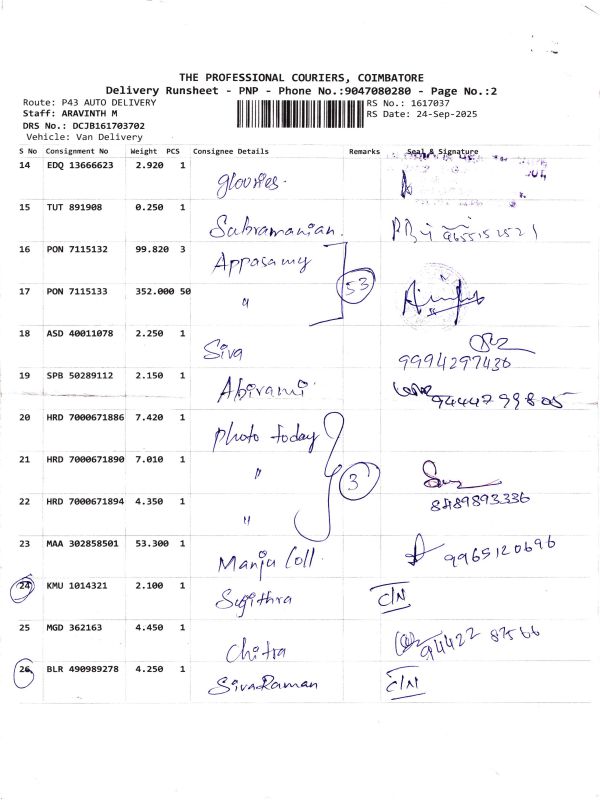 THE PROFESSIONAL COURIERS, COIMBATORE
Delivery Runsheet - PNP - Phone No.:9047080280 - Page No.:2
Route: P43 AUTO DELIVERY RS No.: 1617037
Staff: ARAVINTH M RS Date: 24-Sep-2025
DRS No.: DCJB161703702
Vehicle: Van Delivery
S No Consignment No Weight PCS Consignee Details Remarks Seal & Signature
14 EDQ 13666623 2.920 1 glovries.
15 TUT 891908 0.250 1 Subramanian. 9655152521
16 PON 7115132 99.820 3 Appasamy
53
17 PON 7115133 352.000 50 "
18 ASD 40011078 2.250 1 Siva 9994297436
19 SPB 50289112 2.150 1 Abirami 9444799805
20 HRD 7000671886 7.420 1 photo today
21 HRD 7000671890 7.010 1 "
3
22 HRD 7000671894 4.350 1 " 8489893336
23 MAA 302858501 53.300 1 Manju Coll. 9965120696
24 KMU 1014321 2.100 1 Sugithra C/N
25 MGD 362163 4.450 1 Chitra
26 BLR 490989278 4.250 1 SivaRaman C/N